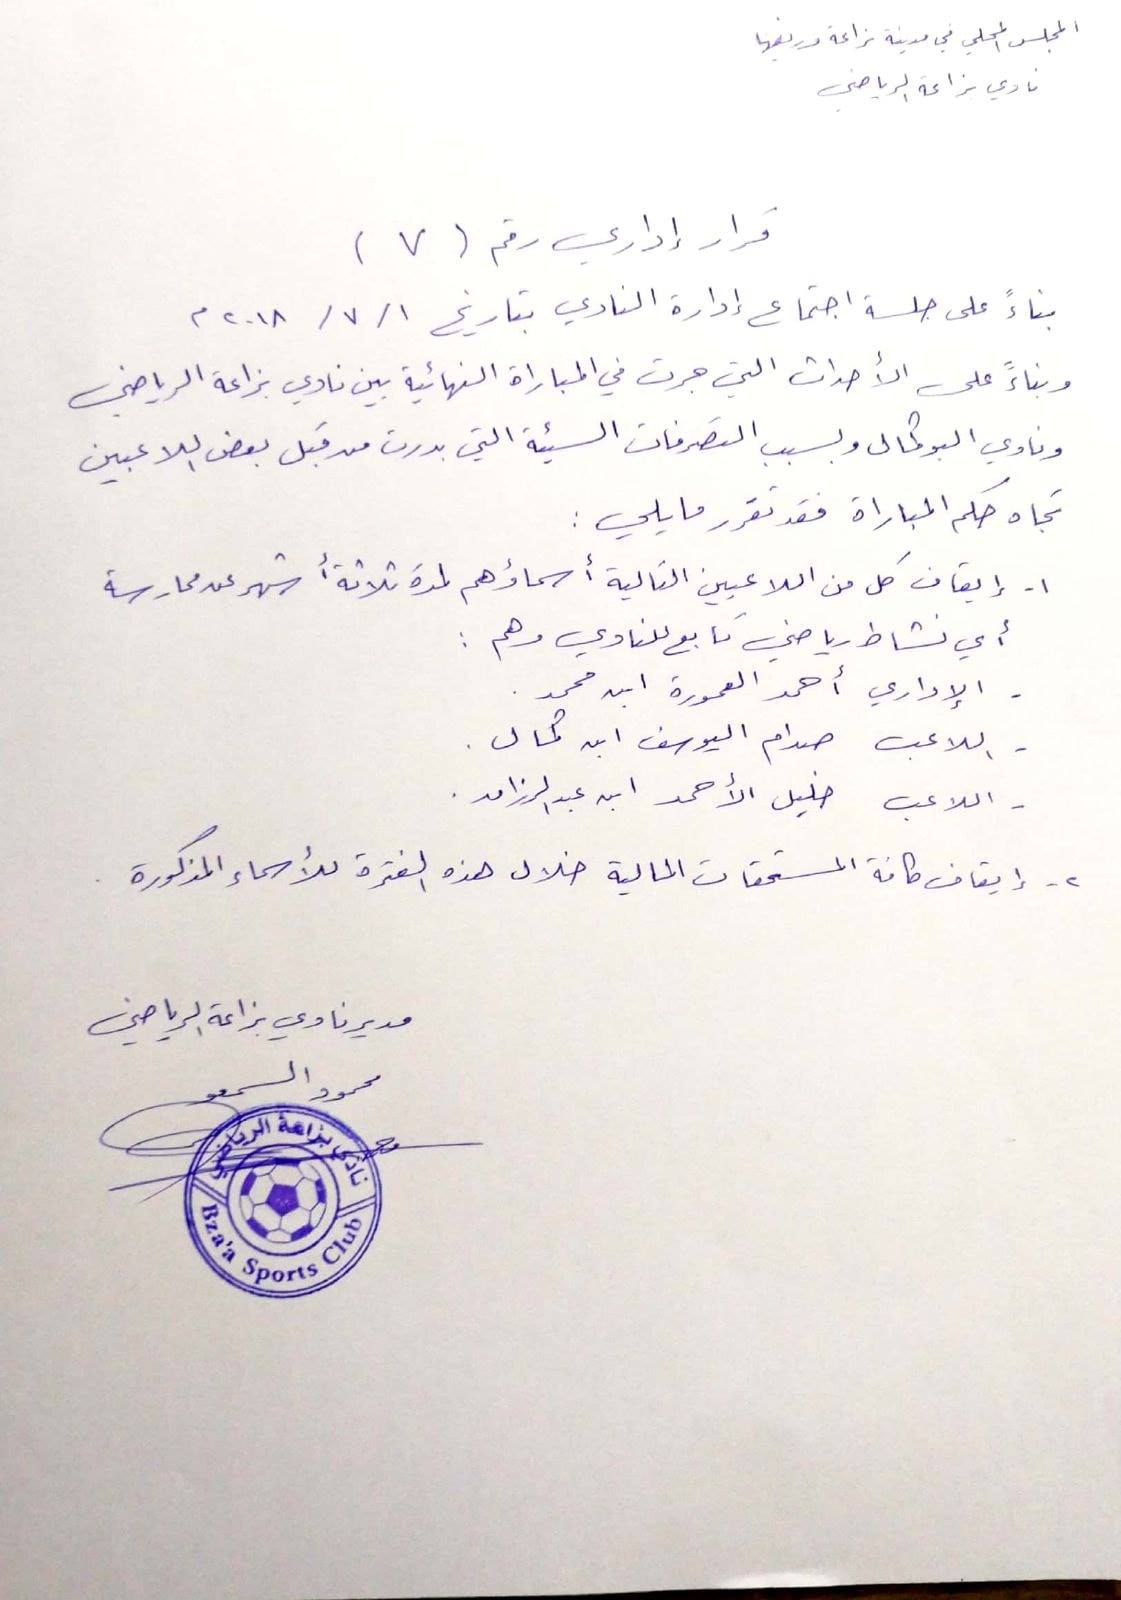 المجلس المحلي في مدينة بزاعة وريفها
نادي بزاعة الرياضي
قرار إداري رقم ( ٧ )
بناءً على جلسة اجتماع إدارة النادي بتاريخ ١ / ٧ / ٢٠١٨ م
وبناءً على الأحداث التي جرت في المباراة النهائية بين نادي بزاعة الرياضي
ونادي البوكمال وبسبب التصرفات السيئة التي بدرت من قبل بعض اللاعبين
تجاه حكم المباراة فقد تقرر مايلي :
١- إيقاف كل من اللاعبين التالية أسماؤهم لمدة ثلاثة أشهر عن ممارسة
أي نشاط رياضي تابع للنادي وهم :
- الإداري أحمد العمورة ابن محمد .
- اللاعب صدام اليوسف ابن كمال .
- اللاعب خليل الأحمد ابن عبد الرزاق .
٢- إيقاف كافة المستحقات المالية خلال هذه الفترة للأسماء المذكورة .
مدير نادي بزاعة الرياضي
محمود السمعو
نادي بزاعة الرياضي
Bza'a Sports Club